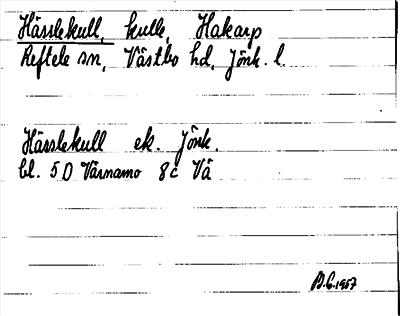 Hässlekull, kulle, Hakarp
Reftele sn, Västbo hd, Jönk. l.
Hässlekull ek. Jönk.
bl. 5 O Värnamo 8c Vå
B.G. 1957